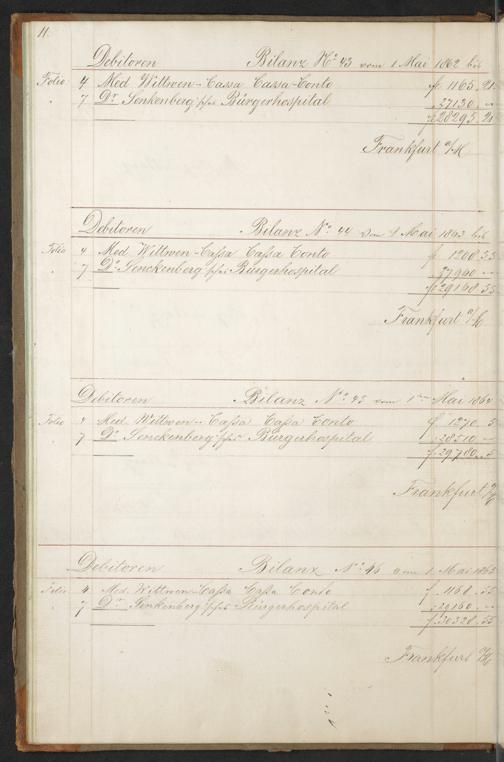 11.
Debitoren Bilanz No 43 vom 1 Mai 1862 bis
Folio 4 Med Wittwen-Cassa Cassa Conto f. 1165.21
" 7 Dr Senkenberg'sches Bürgerhospital 27130.—
f 28295.21
Frankfurt a/M
Debitoren Bilanz No 44 vom 1 Mai 1863 bis
Folio 4 Med Wittwen-Cassa Cassa Conto f. 1208.55
" 7 Dr Senckenberg'sches Bürgerhospital 27960.—
f 29168.55
Frankfurt a/M
Debitoren Bilanz No 45 vom 1ten Mai 1864
Folio 4 Med. Wittwen-Cassa Cassa Conto f. 1270.5
" 7 Dr Senckenberg'sches Bürgerhospital 28510.—
f. 29780.5
Frankfurt a/M
Debitoren Bilanz No 46 vom 1 Mai 1865
Folio 4 Med. Wittwen-Cassa Cassa Conto f. 1168.55
" 7 Dr Senkenberg'sches Bürgerhospital 29160.—
f. 30328.55
Frankfurt a/M